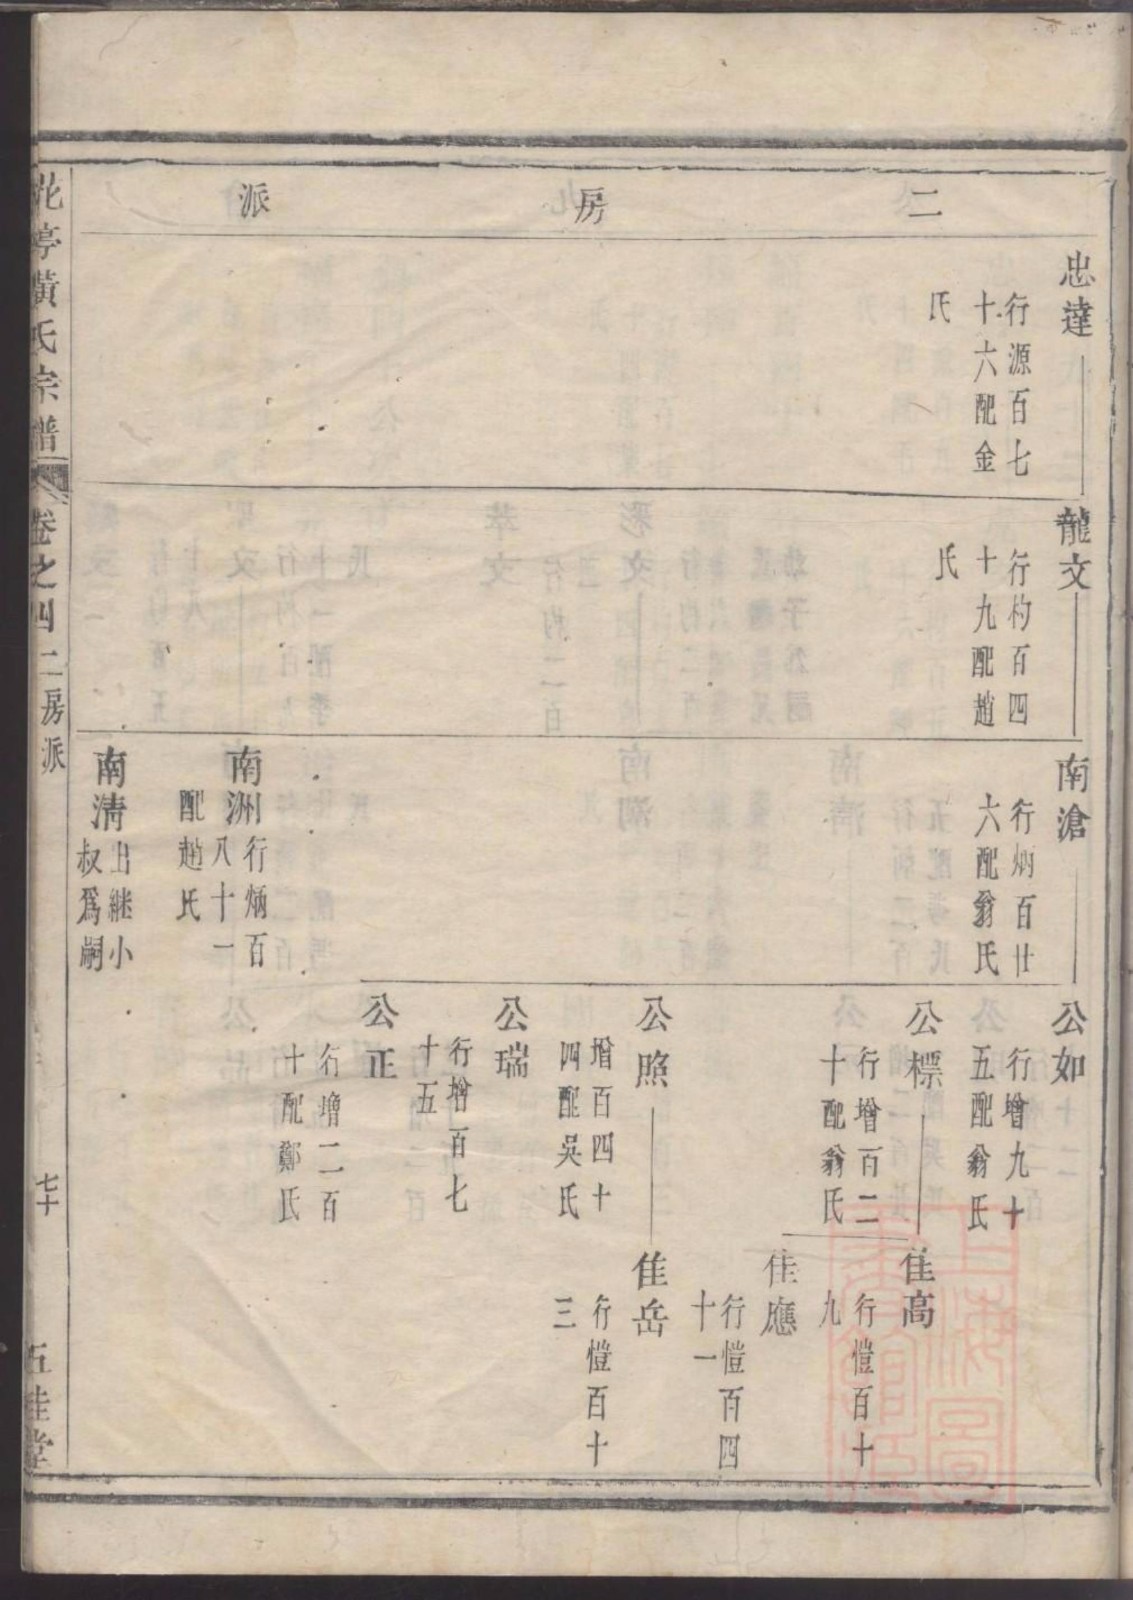 二房派
忠達
行源百七
十六配金
氏
龍文
行杓百四
十九配趙
氏
南滄
行炳百廿
六配翁氏
南洲
行炳百
八十一
配趙氏
南清
出繼小
叔爲嗣
公如
行增九十
五配翁氏
公標
行增百二
十配翁氏
公照
增百四十
四配吳氏
公瑞
行增百七
十五
公正
行增二百
十配鄭氏
佳高
行愷百十
九
佳應
行愷百四
十一
佳岳
行愷百十
三
花亭黃氏宗譜
卷之四二房派
七十
五桂堂